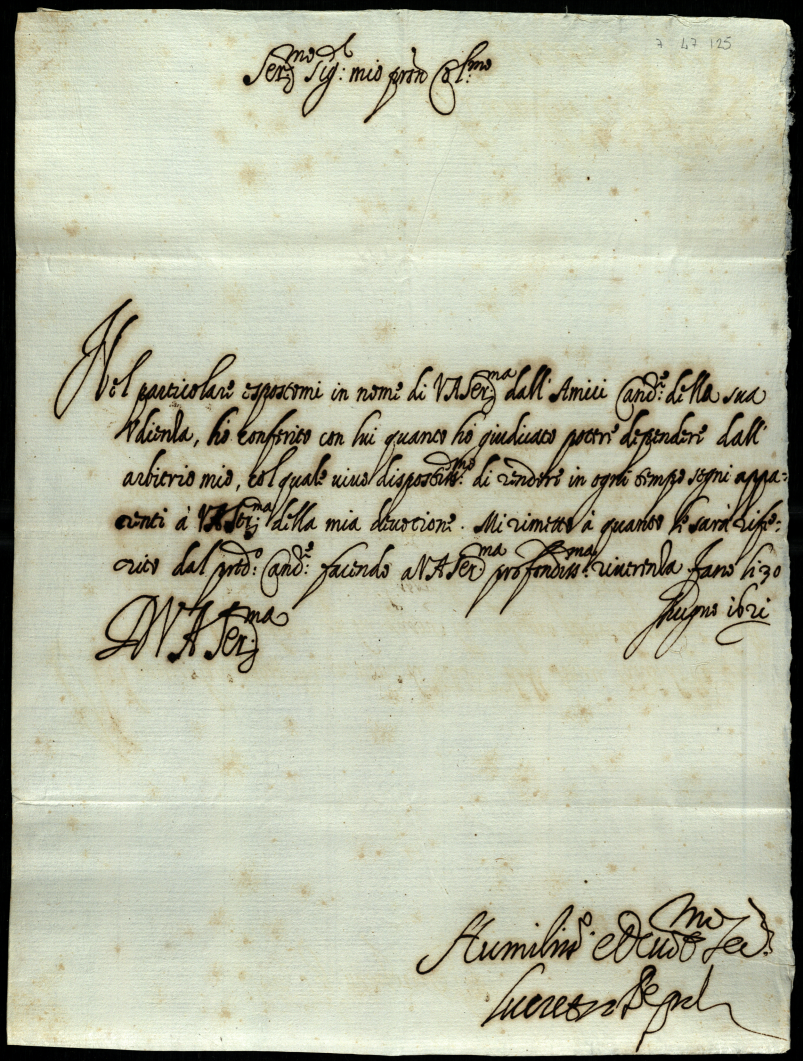 7 47 125
Ser.mo Sig.r mio pròn Col.mo
Nel particolare espostomi in nome di V A Ser.ma dall' Amici Cand.e della sua
Vdienza, hò conferito con lui quanto hò giudicato potere dependere dall'
arbitrio mio, col quale viuo dispostiss.mo di rendere in ogni tempo segni appa-
renti à V A Ser.ma della mia deuotione. Mi rimetto à quanto le sarà rife-
rito dal pred.o Cand.e facendo a V A Ser.ma profondiss.ma riuerenza. Fano li 30
Giugno 1621
D V A Ser.ma
Humiliss.o e Deuot.mo Ser.